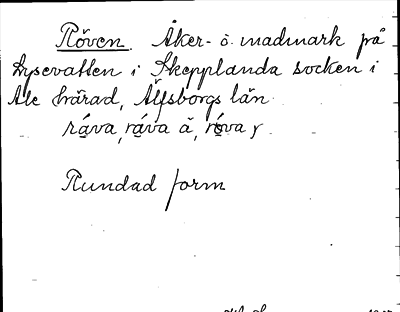 Röven. Åker- o. madmark på
Lysevatten i Skepplanda socken i
Ale härad, Älfsborgs län
ráva, ráva á, róva,
Rundad form